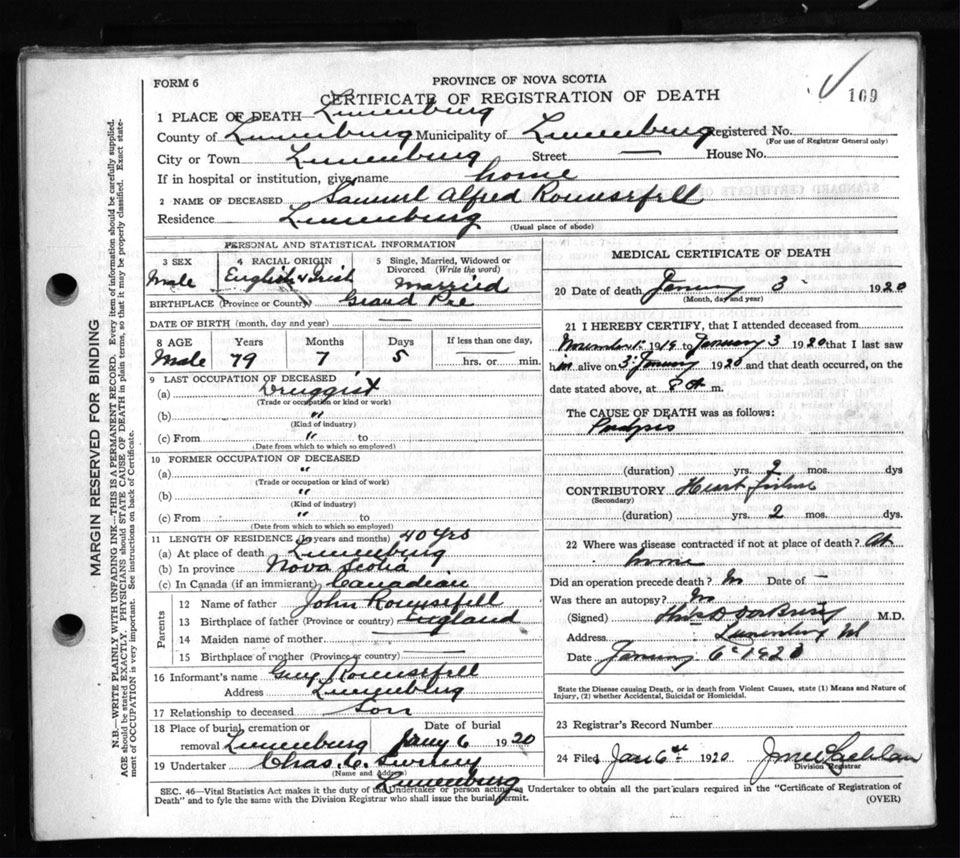 FORM 6
PROVINCE OF NOVA SCOTIA
CERTIFICATE OF REGISTRATION OF DEATH
169
1 PLACE OF DEATH Lunenburg
County of Lunenburg Municipality of Lunenburg Registered No.
(For use of Registrar General only)
City or Town Lunenburg Street — House No.
If in hospital or institution, give name home
2 NAME OF DECEASED Samuel Alfred Rounsefell
Residence Lunenburg
(Usual place of abode)
PERSONAL AND STATISTICAL INFORMATION
3 SEX Male
4 RACIAL ORIGIN English & Irish
5 Single, Married, Widowed or Divorced (Write the word) Married
BIRTHPLACE (Province or Country) Grand Pre
DATE OF BIRTH (month, day and year) —
8 AGE Years Months Days If less than one day,
Male 79 7 5 hrs. or min.
9 LAST OCCUPATION OF DECEASED
(a) Druggist
(Trade or occupation or kind or work)
(b) "
(Kind of industry)
(c) From " to
(Date from which to which so employed)
10 FORMER OCCUPATION OF DECEASED
(a) "
(Trade or occupation or kind or work)
(b) "
(Kind of industry)
(c) From " to
(Date from which to which so employed)
11 LENGTH OF RESIDENCE (In years and months) 40 yrs
(a) At place of death Lunenburg
(b) In province Nova Scotia
(c) In Canada (if an immigrant) Canadian
Parents
12 Name of father John Rounsefell
13 Birthplace of father (Province or country) England
14 Maiden name of mother
15 Birthplace of mother (Province or country) —
16 Informant's name Guy Rounsefell
Address Lunenburg
17 Relationship to deceased Son
18 Place of burial, cremation or removal Lunenburg
Date of burial Jany 6 1920
19 Undertaker Chas. C. Sweeny
(Name and Address)
Lunenburg
MEDICAL CERTIFICATE OF DEATH
20 Date of death January 3 1920
(Month, day and year)
21 I HEREBY CERTIFY, that I attended deceased from
November 1919 to January 3 1920 that I last saw
him alive on 3 January 1920 and that death occurred, on the
date stated above, at m.
The CAUSE OF DEATH was as follows:
(duration) yrs. 2 mos. dys
CONTRIBUTORY Heart failure
(Secondary)
(duration) yrs. 2 mos. dys.
22 Where was disease contracted if not at place of death? At
home
Did an operation precede death? No Date of —
Was there an autopsy? No
(Signed) M.D.
Address Lunenburg
Date January 6 1920
State the Disease causing Death, or in death from Violent Causes, state (1) Means and Nature of
Injury, (2) whether Accidental, Suicidal or Homicidal.
23 Registrar's Record Number
24 Filed Jan 6th 1920
Division Registrar
SEC. 46—Vital Statistics Act makes it the duty of the Undertaker or person acting as Undertaker to obtain all the particulars required in the "Certificate of Registration of
Death" and to fyle the same with the Division Registrar who shall issue the burial permit.
(OVER)
MARGIN RESERVED FOR BINDING
N.B.—WRITE PLAINLY WITH UNFADING INK—THIS IS A PERMANENT RECORD. Every item of information should be carefully supplied.
AGE should be stated EXACTLY. PHYSICIANS should STATE CAUSE OF DEATH in plain terms, so that it may be properly classified. Exact state-
ment of OCCUPATION is very important. See instructions on back of Certificate.